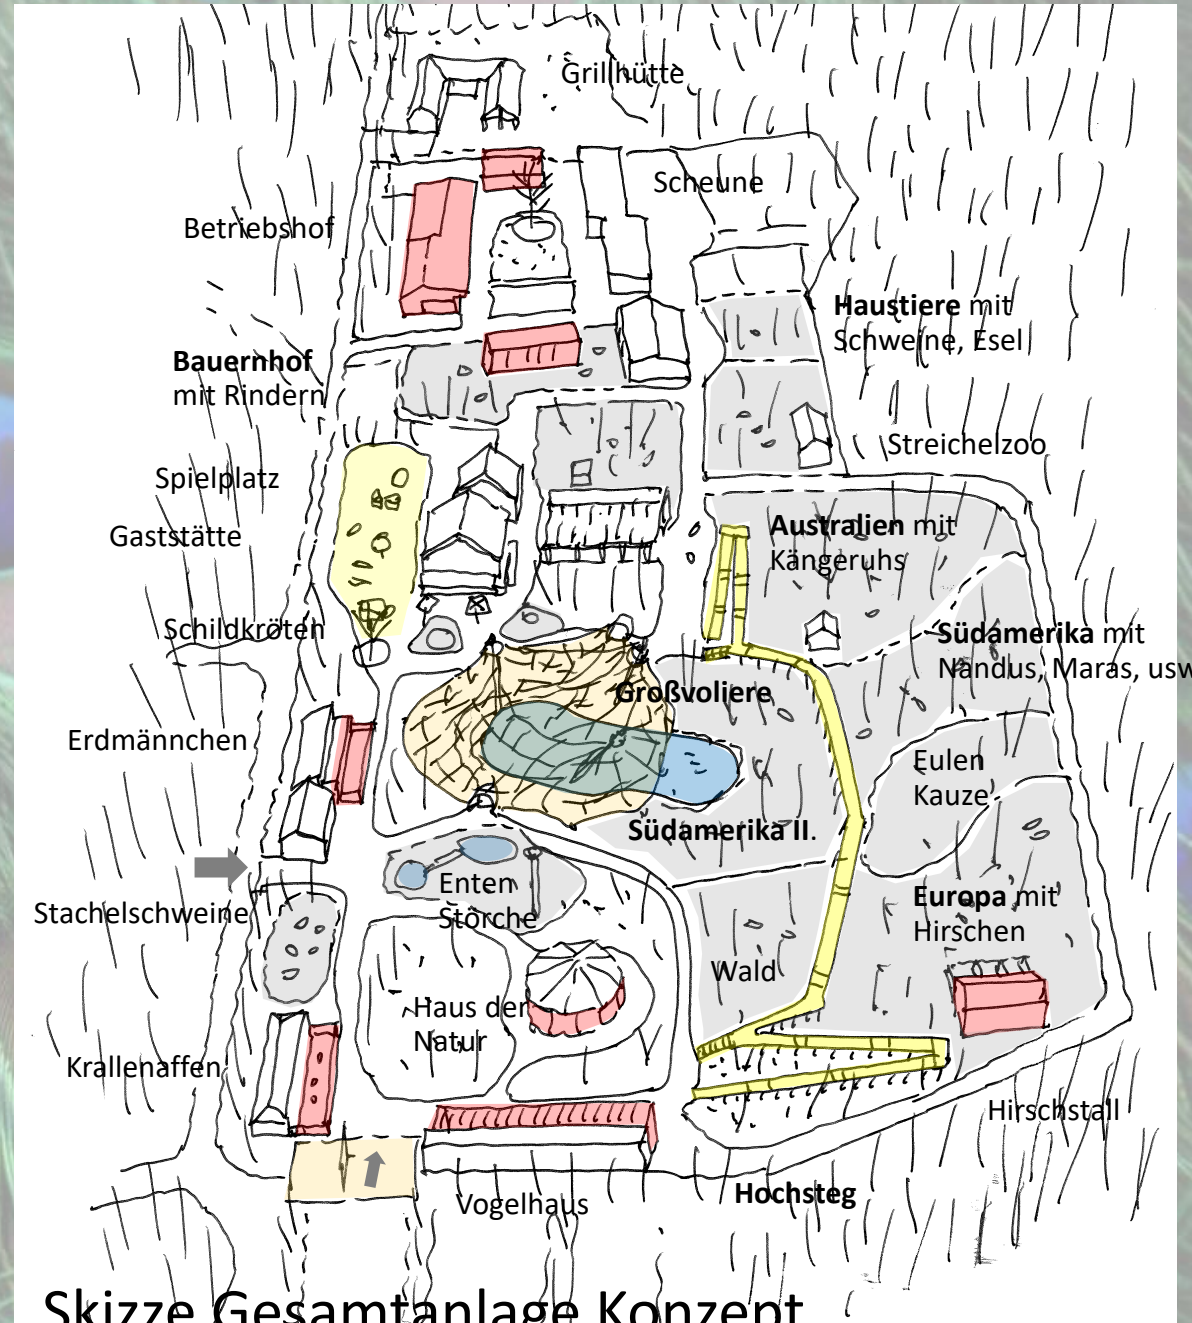 Grillhütte
Scheune
Betriebshof
Haustiere mit
Schweine, Esel
Bauernhof
mit Rindern
Streichelzoo
Spielplatz
Australien mit
Kängeruhs
Gaststätte
Schildkröten
Südamerika mit
Nandus, Maras, usw
Großvoliere
Erdmännchen
Eulen
Kauze
Südamerika II.
Enten
Störche
Europa mit
Hirschen
Stachelschweine
Wald
Haus der
Natur
Krallenaffen
Hirschstall
Hochsteg
Vogelhaus
Skizze Gesamtanlage Konzept